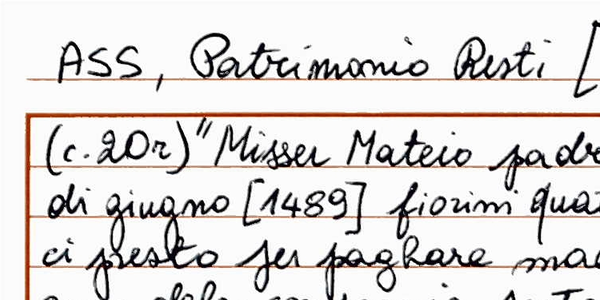 ASS, Patrimonio Resti [
(c.20r) "Misser Mateio padre
di giugno [1489] fiorini qua
ci presto per paghare ma